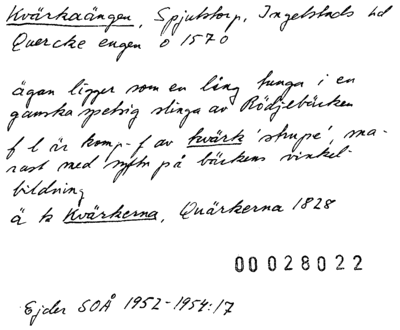 Kvärkaängen, Spjutstorp, Ingelstads hd
Quercke engen o 1570
ägan ligger som en lång tunga i en
ganska spetsig slinga av Rödjebäcken
f l är komp.-f av kvärk 'strupe', na-
rast med syftn på bäckens vinkel-
bildning
ä ts Kvärkerna, Quärkerna 1828
00028022
Ejder SOÅ 1952-1954:17